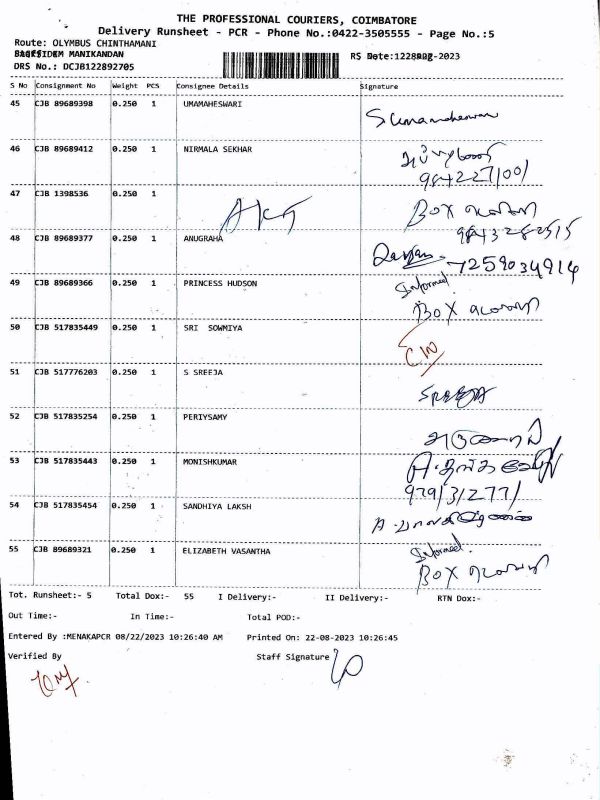 THE PROFESSIONAL COURIERS, COIMBATORE
Delivery Runsheet - PCR - Phone No.:0422-3505555 - Page No.:5
Route: OLYMBUS CHINTHAMANI
MANIKANDAN RS Date: -2023
DRS No.: DCJB122892705
S No Consignment No Weight PCS Consignee Details Signature
45 CJB 89689398 0.250 1 UMAMAHESWARI
46 CJB 89689412 0.250 1 NIRMALA SEKHAR
47 CJB 1398536 0.250 1 BOX
48 CJB 89689377 0.250 1 ANUGRAHA
7259034914
49 CJB 89689366 0.250 1 PRINCESS HUDSON Informed
BOX
50 CJB 517835449 0.250 1 SRI SOWMIYA
51 CJB 517776203 0.250 1 S SREEJA
SREEJA
52 CJB 517835254 0.250 1 PERIYSAMY
53 CJB 517835443 0.250 1 MONISHKUMAR
54 CJB 517835454 0.250 1 SANDHIYA LAKSH
55 CJB 89689321 0.250 1 ELIZABETH VASANTHA Informed
BOX
Tot. Runsheet:- 5 Total Dox:- 55 I Delivery:- II Delivery:- RTN Dox:-
Out Time:- In Time:- Total POD:-
Entered By :MENAKAPCR 08/22/2023 10:26:40 AM Printed On: 22-08-2023 10:26:45
Verified By Staff Signature